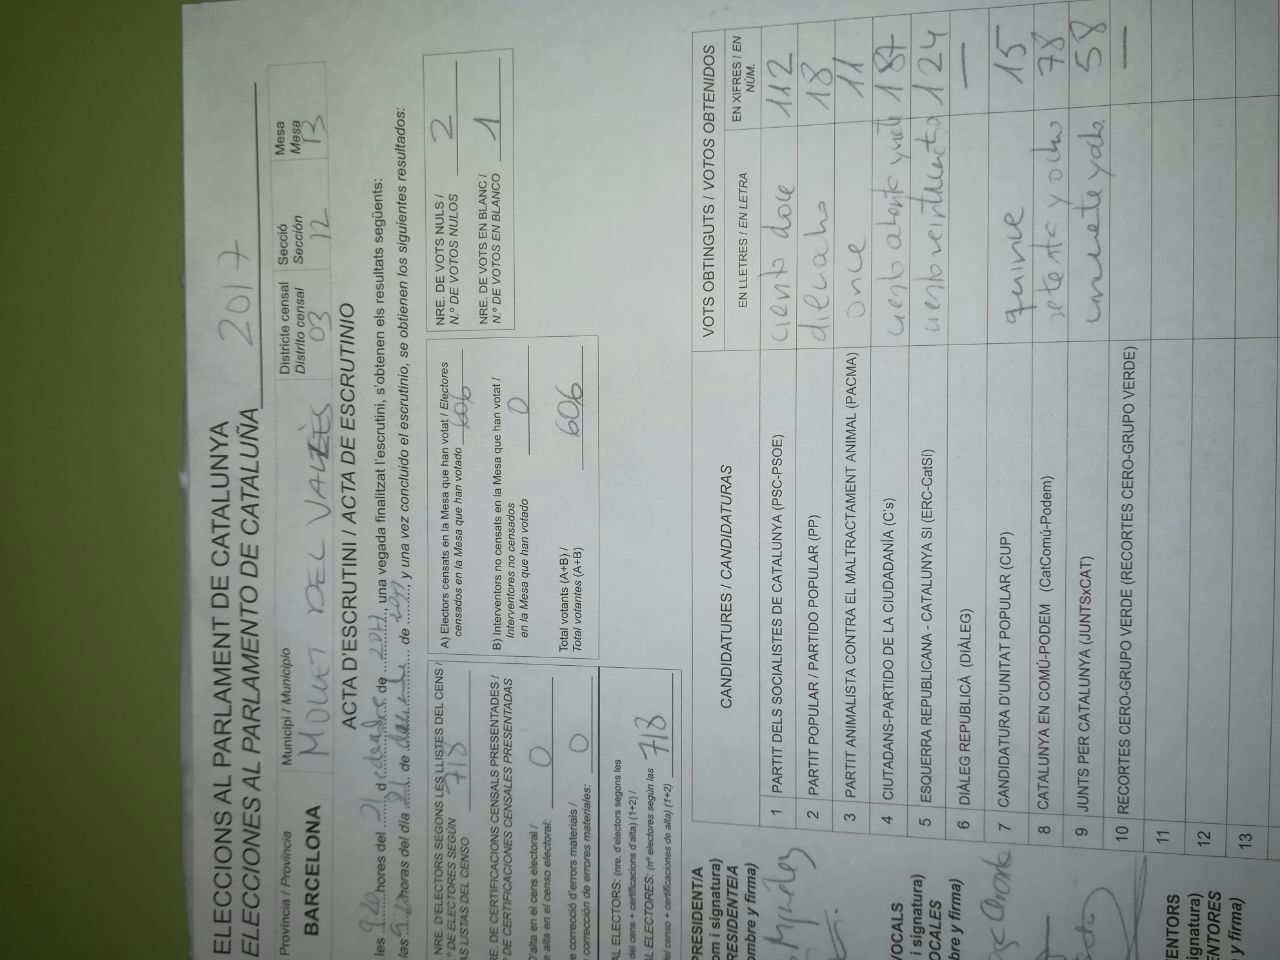 ELECCIONS AL PARLAMENT DE CATALUNYA
ELECCIONES AL PARLAMENTO DE CATALUÑA 2017
Província / Provincia
BARCELONA
Municipi / Municipio
MOLLET DEL VALLÈS
Districte censal
Distrito censal
03
Secció
Sección
12
Mesa
Mesa
B
ACTA D'ESCRUTINI / ACTA DE ESCRUTINIO
les hores del 21 d de 2017, una vegada finalitzat l'escrutini, s'obtenen els resultats següents:
las horas del día 21 de de 2017, y una vez concluido el escrutinio, se obtienen los siguientes resultados:
NRE. D'ELECTORS SEGONS LES LLISTES DEL CENS /
º DE ELECTORES SEGÚN
AS LISTAS DEL CENSO 718
E. DE CERTIFICACIONS CENSALS PRESENTADES /
DE CERTIFICACIONES CENSALES PRESENTADAS
D'alta en el cens electoral /
e alta en el censo electoral: 0
e correcció d'errors materials /
corrección de errores materiales: 0
AL ELECTORS: (nre. d'electors segons les
del cens + certificacions d'alta) (1+2) /
AL ELECTORES: (nº electores según las
del censo + certificaciones de alta) (1+2) 718
A) Electors censats en la Mesa que han votat / Electores
censados en la Mesa que han votado 606
B) Interventors no censats en la Mesa que han votat /
Interventores no censados
en la Mesa que han votado 0
Total votants (A+B) /
Total votantes (A+B) 606
NRE. DE VOTS NULS /
N.º DE VOTOS NULOS 2
NRE. DE VOTS EN BLANC /
N.º DE VOTOS EN BLANCO 1
CANDIDATURES / CANDIDATURAS
VOTS OBTINGUTS / VOTOS OBTENIDOS
EN LLETRES / EN LETRA
EN XIFRES / EN NÚM.
1 PARTIT DELS SOCIALISTES DE CATALUNYA (PSC-PSOE) ciento doce 112
2 PARTIT POPULAR / PARTIDO POPULAR (PP) dieciocho 18
3 PARTIT ANIMALISTA CONTRA EL MALTRACTAMENT ANIMAL (PACMA) once 11
4 CIUTADANS-PARTIDO DE LA CIUDADANÍA (C's) ciento ochenta y siete 187
5 ESQUERRA REPUBLICANA - CATALUNYA SI (ERC-CatSí) ciento veinticuatro 124
6 DIÀLEG REPUBLICÀ (DIÀLEG) —
7 CANDIDATURA D'UNITAT POPULAR (CUP) quince 15
8 CATALUNYA EN COMÚ-PODEM (CatComú-Podem) setenta y ocho 78
9 JUNTS PER CATALUNYA (JUNTSxCAT) cincuenta y ocho 58
10 RECORTES CERO-GRUPO VERDE (RECORTES CERO-GRUPO VERDE) —
11
12
13
PRESIDENTIA
om i signatura)
RESIDENTEIA
ombre y firma)
VOCALS
i signatura)
OCALES
bre y firma)
ENTORS
ignatura)
ENTORES
y firma)